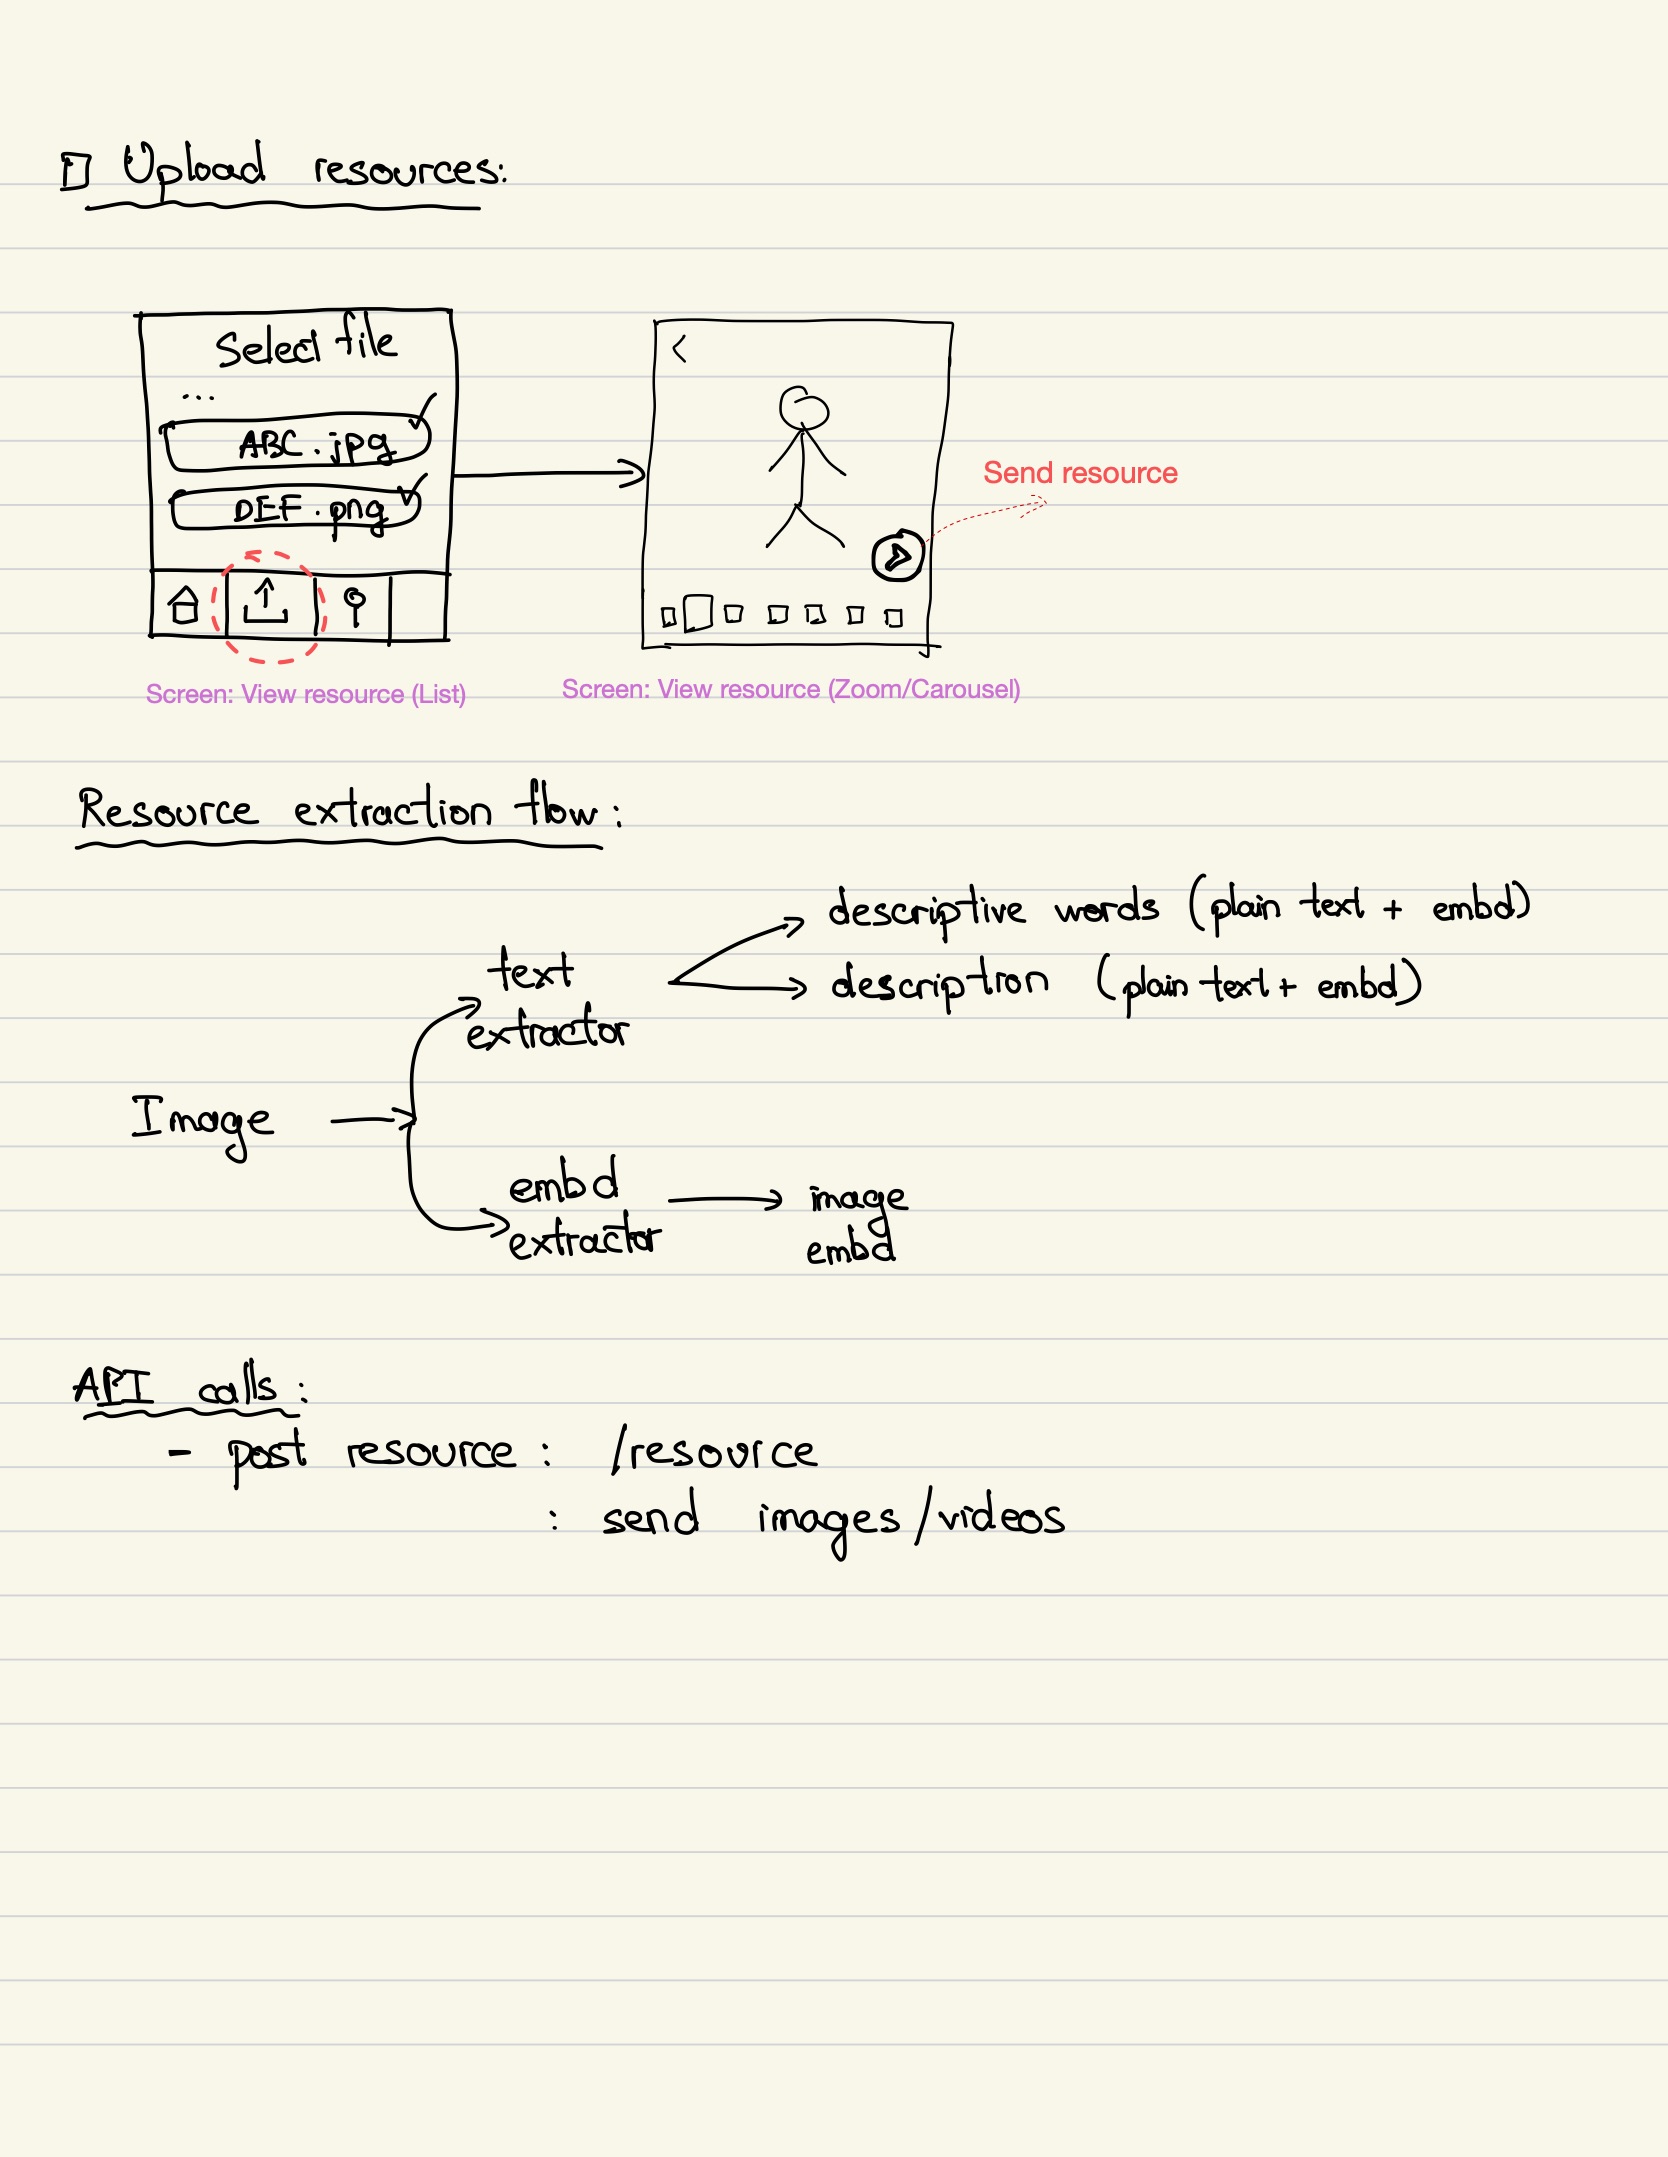 Upload resources:
Select file
...
ABC.jpg
DEF.png
Send resource
Screen: View resource (List)
Screen: View resource (Zoom/Carousel)
Resource extraction flow:
descriptive words (plain text + embd)
text
extractor
description (plain text + embd)
Image
embd
extractor
image
embd
API calls:
- post resource : /resource
: send images/videos